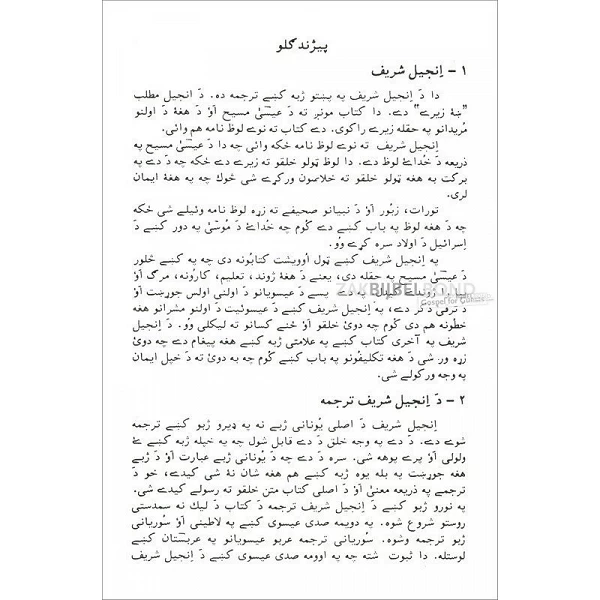 پيژند ګلو
١ – اِنجيل شريف
دا دَ اِنجيل شريف په پښتو ژبه کښے ترجمه ده. دَ انجيل مطلب
”ښۀ زيرے“ دے. دا کتاب مونږ ته دَ عيسىٰ مسيح اؤ دَ هغۀ دَ اولنو
مُريدانو په حقله زيرے راکوى. دے کتاب ته نوے لوظ نامه هم وائى.
اِنجيل شريف ته نوے لوظ نامه ځکه وائى چه دا دَ عيسىٰ مسيح په
ذريعه دَ خُدائے لوظ دے. دا لوظ ټولو خلقو ته زيرے دے ځکه چه دَ دے په
برکت به هغه ټولو خلقو ته خلاصون ورکړے شى څوک چه په هغۀ ايمان
لرى.
تورات، زبُور اؤ دَ نبيانو صحيفے ته زړه لوظ نامه وئيلے شى ځکه
چه دَ هغه لوظ په باب کښے دے کُوم چه خُدائے دَ مُوسىٰ په دور کښے دَ
اِسرائيل دَ اولاد سره کړے وُو.
په اِنجيل شريف کښے ټول اووۀيشت کتابونه دى چه په کښے څلور
دَ عيسىٰ مسيح په حقله دى، يعنے دَ هغۀ ژوند، تعليم، کارُونه، مرګ اؤ
بيا ژوندے کيدل په دے پسے دَ عيسويانو دَ اولنى اولس جوړښت اؤ
دَ ترقۍ ذکر دے، په اِنجيل شريف کښے دَ عيسوئيت دَ اولنو مشرانو هغه
خطُونه هم دى کُوم چه دوئ خلقو اؤ ځنے کسانو ته ليکلى وُو. دَ اِنجيل
شريف په آخرى کتاب کښے په علامتى ژبه کښے هغه پيغام دے چه دوئ
زړه ور شى دَ هغه تکليفُونو په باب کښے کُوم چه به دوئ ته دَ خپل ايمان
په وجه ورکولے شى.
٢ – دَ اِنجيل شريف ترجمه
اِنجيل شريف دَ اصلى يُونانى ژبے نه په ډيرو ژبو کښے ترجمه
شوے دے. دَ دے په وجه خلق دَ دے قابل شول چه په خپله ژبه کښے ئے
ولولى اؤ پرے پوهه شى. سره دَ دے چه دَ يُونانى ژبے عبارت اؤ دَ ژبے
هغه جوړښت په بله يوه ژبه کښے هم هغه شان نۀ شى کيدے، خو دَ
ترجمے په ذريعه معنىٰ اؤ دَ اصلى کتاب متن خلقو ته رسولے کيدے شى.
په نورو ژبو کښے دَ اِنجيل شريف ترجمه دَ کتاب دَ ليک نه سمدستى
روستو شروع شوه. په دويمه صدى عيسوى کښے په لاطينى اؤ سوريانى
ترجمه وشوه. سوريانى ترجمه عربو عيسويانو په عربستان کښے
لوستله. دا ثبوت شته چه په اوومه صدى عيسوى کښے دَ اِنجيل شريف
ZAKBIJBELBOND
Gospel for Guests